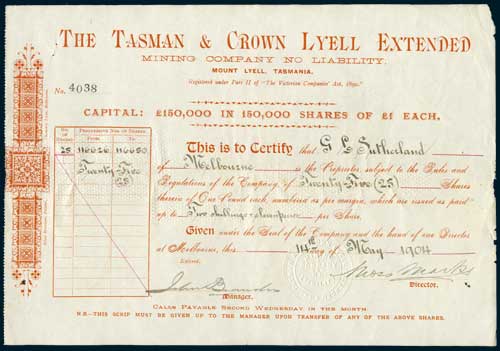 THE TASMAN & CROWN LYELL EXTENDED
MINING COMPANY NO LIABILITY.
MOUNT LYELL, TASMANIA.
Registered under Part II of "The Victorian Companies' Act, 1890."
No. 4038
CAPITAL: £150,000 IN 150,000 SHARES OF £1 EACH.
No. of Shares. PROGRESSIVE NOS. OF SHARES.
From To
25 116626 116650
Twenty-Five
(25)
This is to Certify that G L Sutherland
of Melbourne is the Proprietor, subject to the Rules and
Regulations of the Company, of Twenty-Five (25) Shares
therein of One Pound each, numbered as per margin, which are issued as paid
up to Two shillings & elevenpence per Share.
Given under the Seal of the Company and the hand of one Director
at Melbourne, this 14th day of May 1904
Entered,
Manager.
Moss Marks
Director.
CALLS PAYABLE SECOND WEDNESDAY IN THE MONTH.
N.B.—THIS SCRIP MUST BE GIVEN UP TO THE MANAGER UPON TRANSFER OF ANY OF THE ABOVE SHARES.